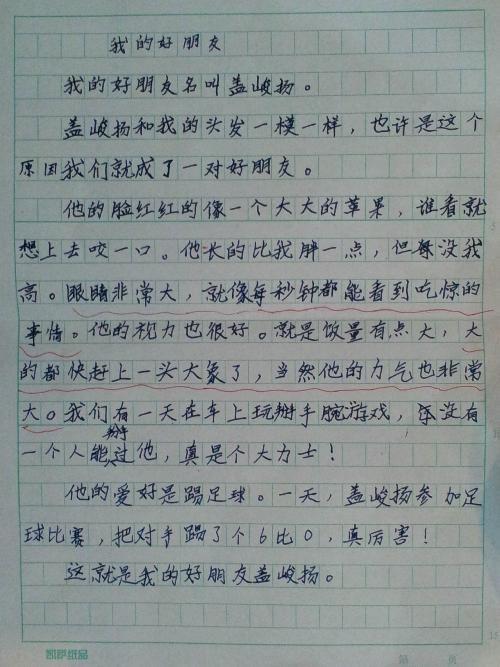 我的好朋友
我的好朋友名叫盖峻扬。
盖峻扬和我的头发一模一样，也许是这个
原因我们就成了一对好朋友。
他的脸红红的像一个大大的苹果，谁看就
想上去咬一口。他长的比我胖一点，但没我
高。眼睛非常大，就像每秒钟都能看到吃惊的
事情。他的视力也很好。就是饭量有点大，大
的都快赶上一头大象了，当然他的力气也非常
大。我们有一天在车上玩掰手腕游戏，没有
掰
一个人能过他，真是个大力士！
他的爱好是踢足球。一天，盖峻扬参加足
球比赛，把对手踢了个6比0，真厉害！
这就是我的好朋友盖峻扬。
凯萨纸品
第 页
15